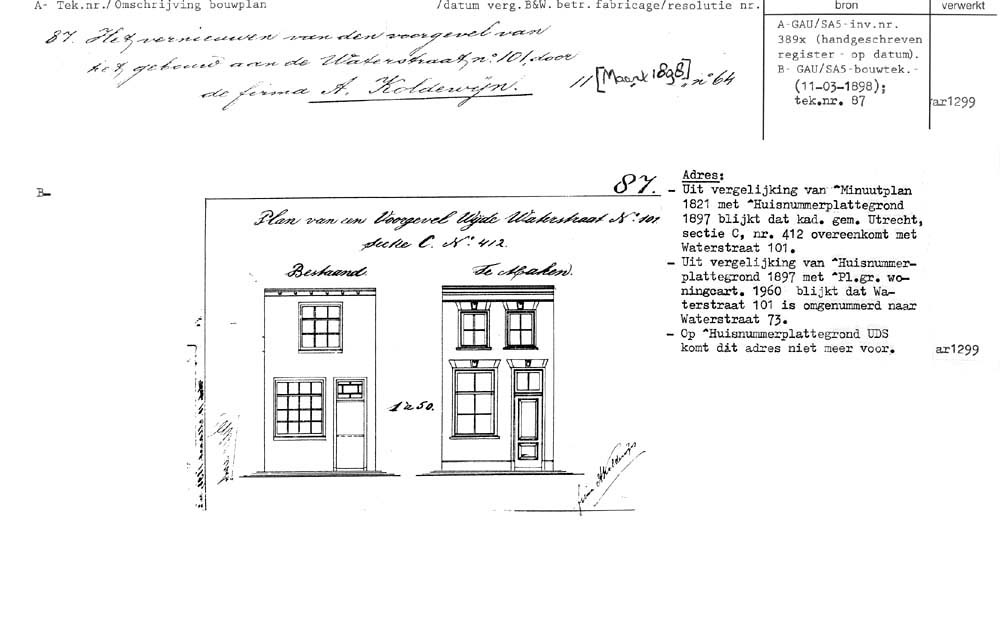 A- Tek.nr./Omschrijving bouwplan
/datum verg.B&W.betr.fabricage/resolutie nr.
bron
verwerkt
87. Het vernieuwen van den voorgevel van
het gebouw aan de Waterstraat, n° 101, door
de firma A. Koldewijn.
11 [Maart 1898] n° 64
A-GAU/SA5-inv.nr.
389x (handgeschreven
register - op datum).
B- GAU/SA5-bouwtek.-
(11-03-1898);
tek.nr. 87
ar1299
B-
87.
Plan van een Voorgevel Wijde Waterstraat N° 101
Sectie C. N° 412.
Bestaand.
Te Maken.
1 à 50.
firma A Koldewijn
Adres:
- Uit vergelijking van ^Minuutplan
1821 met ^Huisnummerplattegrond
1897 blijkt dat kad. gem. Utrecht,
sectie C, nr. 412 overeenkomt met
Waterstraat 101.
- Uit vergelijking van ^Huisnummer-
plattegrond 1897 met ^Pl.gr. wo-
ningcart. 1960 blijkt dat Wa-
terstraat 101 is omgenummerd naar
Waterstraat 73.
- Op ^Huisnummerplattegrond UDS
komt dit adres niet meer voor.
ar1299